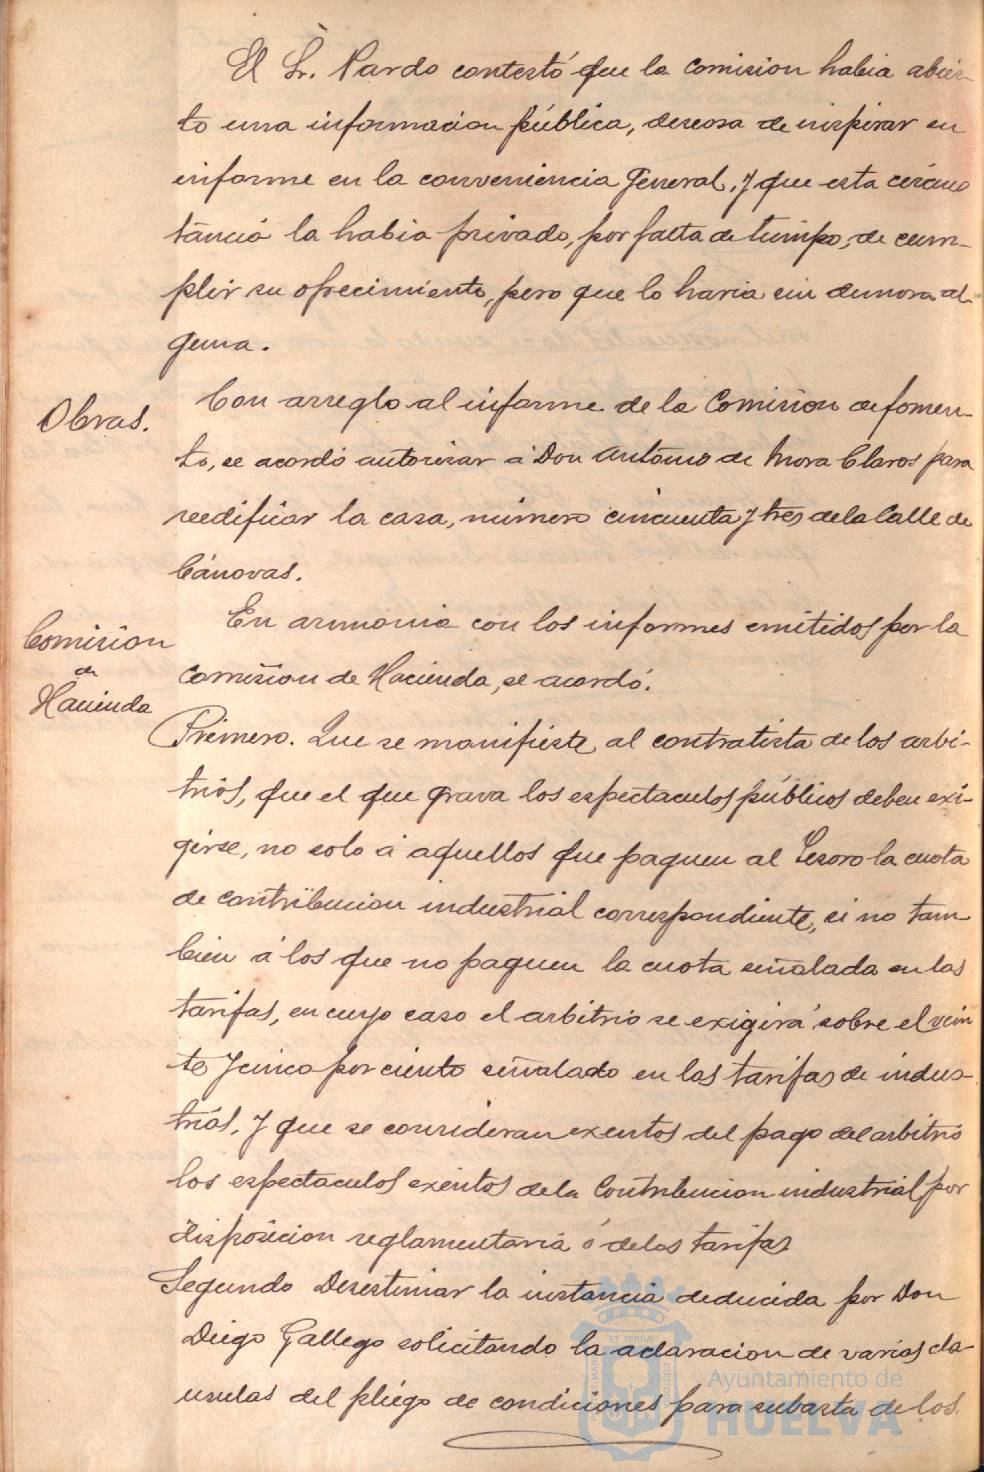 El Sr. Pardo contestó que la comision habia abier-
to una informacion pública, deseosa de inspirar su
informe en la conveniencia general, y que esta circuns
táncia la habia privado, por falta de tiempo, de cum-
plir su ofrecimiento, pero que lo haria sin demora al-
guna.
Obras.
Con arreglo al informe de la Comision de fomen-
to, se acordó autorizar á Don Antonio de Mora Claros para
reedificar la casa, número cincuenta y tres de la Calle de
Cánovas.
Comision
de
Hacienda
En armonia con los informes emitidos por la
comision de Hacienda, se acordó.
Primero. Que se manifieste al contratista de los arbi-
trios, que el que grava los espectaculos públicos deben exi-
girse, no solo á aquellos que paguen al Tesoro la cuota
de contribucion industrial correspondiente, si no tam-
bien á los que no paguen la cuota señalada en las
tarifas, en cuyo caso el arbitrio se exigirá sobre el vein
te y cinco por ciento señalado en las tarifas de indus-
trias, y que se consideran exentos del pago del arbitrio
los espectaculos exentos de la Contribucion industrial por
disposicion reglamentaria ó de las tarifas
Segundo Desestimar la instancia deducida por Don
Diego Gallego solicitando la aclaracion de varias cla-
usulas del pliego de condiciones para subasta de los
Ayuntamiento de
HUELVA